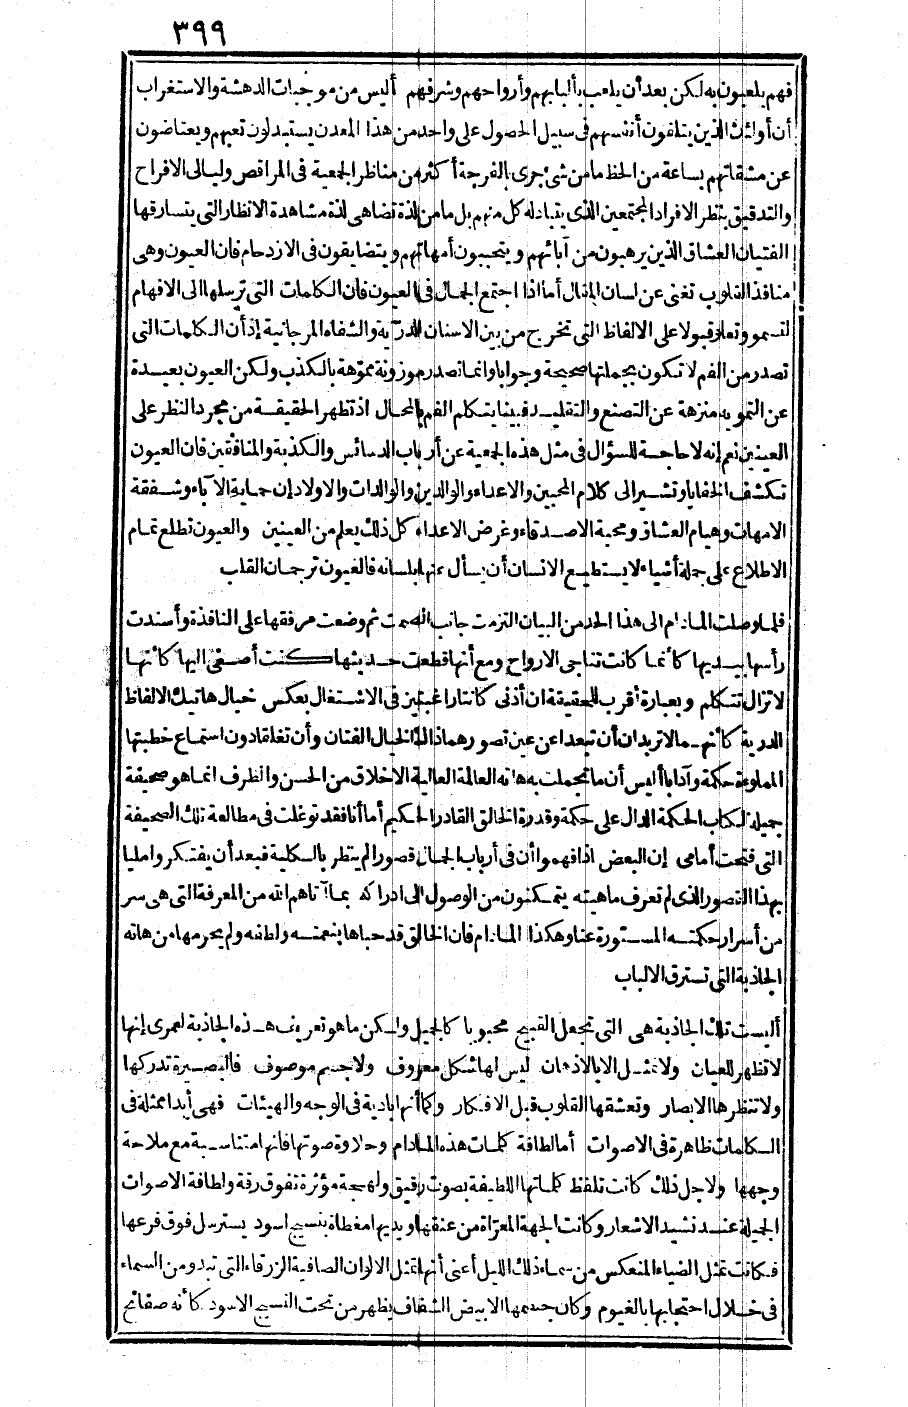 ٣٩٩
فهم يلعبون به لكن بعد أن يلعب بألبابهم وأرواحهم وشرفهم أليس من موجبات الدهشة والاستغراب
أن أولئك الذين يتلفون أنفسهم فى سبيل الحصول على واحد من هذا المعدن يستبدلون تعبهم ويعتاضون
عن مشقاتهم بساعة من الحظ ما من شئ يجرى بالفرجة أكثر من مناظر الجمعية فى المراقص وليالى الافراح
والتدقيق بنظر الافراد المجتمعين الذى يتبادله كل منهم بل ما من لذة تضاهى لذة مشاهدة الانظار التى يتسارقها
الفتيان العشاق الذين يرهبون من آبائهم ويتجنبون أمهاتهم ويتضايقون فى الازدحام فان العيون وهى
منافذ القلوب تغنى عن لسان المقال أما اذا اجتمع الجمال فى العيون فان الكلمات التى ترسلها الى الافهام
لتسمو وتعلو قبولا على الالفاظ التى تخرج من بين الاسنان الدرية والشفاه المرجانية إذ أن الكلمات التى
تصدر من الفم لا تكون بجملتها صحيحة وجوابا وانما تصدر موزونة مموّهة بالكذب ولكن العيون بعيدة
عن التمويه منزهة عن التصنع والتقليد فبينا يتكلم الفم بالمحال اذ تظهر الحقيقة من مجرد النظر على
العينين نعم إنه لا حاجة للسؤال فى مثل هذه الجمعية عن أرباب الدسائس والكذبة والمنافقين فان العيون
تكشف الخفايا وتشير الى كلام المحبين والاعداء والوالدين والوالدات والاولاد إن حماية الآباء وشفقة
الامهات وهيام العشاق ومحبة الاصدقاء وغرض الاعداء كل ذلك يعلم من العينين والعيون تطلع تمام
الاطلاع على جملة أشياء لا يستطيع الانسان أن يسأل عنها بلسانه فالعيون ترجمان القلب
فلما وصلت المادام الى هذا الحد من البيان التزمت جانب الصمت ثم وضعت مرفقها على النافذة وأسندت
رأسها بيديها كأنما كانت تناجى الارواح ومع أنها قطعت حديثها كنت أصغى اليها كأنها
لا تزال تتكلم وبعبارة أقرب للحقيقة ان أذنى كانتا راغبتين فى الاشتغال بعكس خيال هاتيك الالفاظ
الدرية كأنهما لا تريدان أن تبعدا عن عين تصورهما ذلك الخيال الفتان وأن تغلقا دون استماع خطبتها
المملوءة حكمة وآدابا أليس أن ما تجملت به هاته العالمة العالية الاخلاق من الحسن والظرف انما هو صحيفة
جميلة لكتاب الحكمة الدال على حكمة وقدرة الخالق القادر الحكيم أما أنا فقد توغلت فى مطالعة تلك الصحيفة
التى فتحت أمامى إن البعض اذا فهموا أن فى أرباب الجمال قصورا لم ينظر بالكلية فبعد أن يفتكروا مليا
بهذا القصور الذى لم تعرف ماهيته يتمكنون من الوصول الى ادراكه بما آتاهم الله من المعرفة التى هى سر
من أسرار حكمته المستورة عنا وهكذا المادام فان الخالق قد حباها بنعمته ولطفه ولم يحرمها من هاته
الجاذبة التى تسترق الالباب
أليست تلك الجاذبة هى التى تجعل القبيح محبوبا كالجميل ولكن ما هو تعريف هذه الجاذبة لعمرى إنها
لا تظهر للعيان ولا تمثل الا بالاذهان ليس لها شكل معروف ولا جسم موصوف فالبصيرة تدركها
ولا تنظرها الابصار وتعشقها القلوب قبل الافكار وكما أنها بادية فى الوجه والهيئات فهى أيدا ممثلة فى
الكلمات ظاهرة فى الاصوات أما لطافة كلمات هذه المادام وحلاوة صوتها فانها متناسبة مع ملاحة
وجهها ولاجل ذلك كانت تلفظ كلماتها اللطيفة بصوت رقيق ولهجة مؤثرة تفوق رقة ولطافة الاصوات
الجميلة عند نشيد الاشعار وكانت الجهة المعرّاة من عنقها ويديها مغطاة بنسيج اسود يسترسل فوق فرعها
فكانت تمثل الضياء المنعكس من سماء ذلك الليل أعنى أنها تمثل الالوان الصافية الزرقاء التى تبدو من السماء
فى خلال احتجابها بالغيوم وكان جسمها الابيض الشفاف يظهر من تحت النسيج الاسود كأنه صفائح